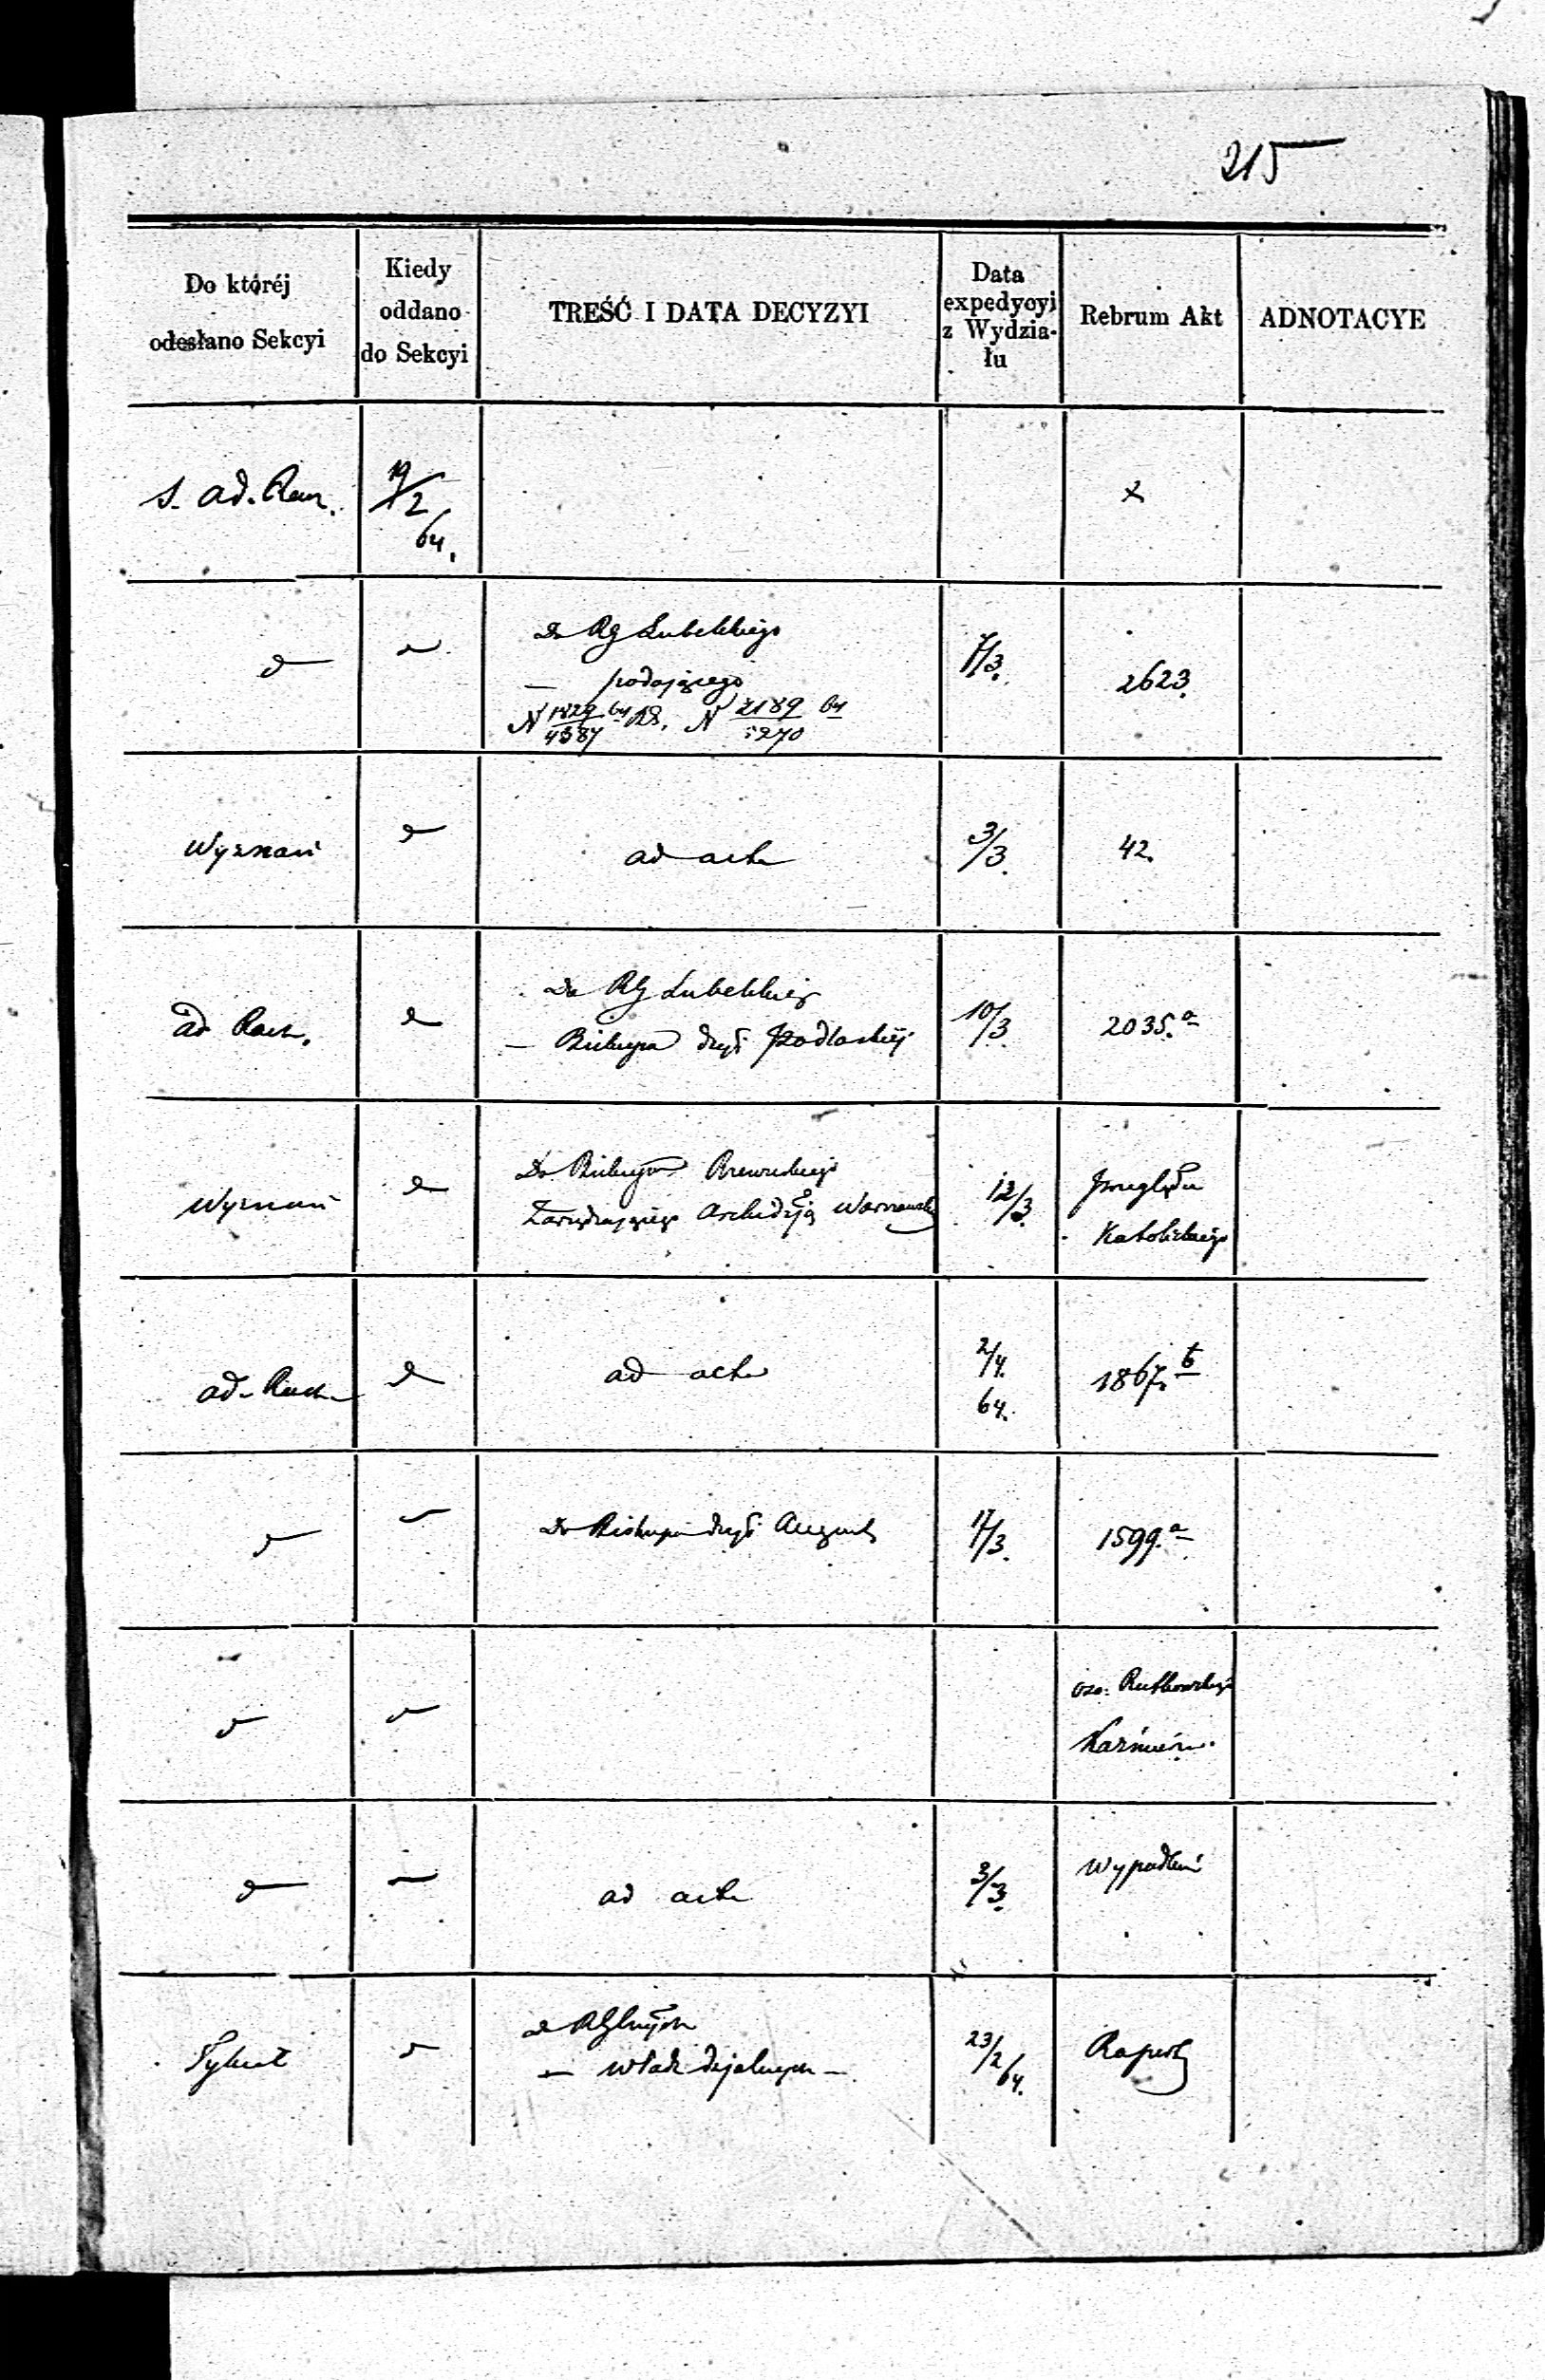 215
Do któréj
odesłano Sekcyi
Kiedy
oddano
do Sekcyi
TREŚĆ I DATA DECYZYI
Data
expedycyi
z Wydzia-
łu
Rebrum Akt
ADNOTACYE
S. ad. Rach.
19/2
64.
x
Do RG Lubelskiego
— podającego
N 1829/4387 64 RS. N 2189/5270 64
7/3.
2623.
Wyznań
ad acta
3/3.
42.
ad Rach.
Do RG Lubelskiego
— Biskupa dyj Podlaskiéj
10/3.
2035.a
Wyznań
Do Biskupa Rzewuskiego
Zarządzającego Archidyją Warszawską
12/3.
Przeglądu
Katolickiego
ad. Rach.
ad acta
2/4.
64.
1867. b
Do Biskupa dyj August
17/3.
1599.a
oso. Rutkowskiego
Kaźmierz.
ad acta
3/3.
Wypadków
— Władz dyjalnych —
23/2/64.
Raporty